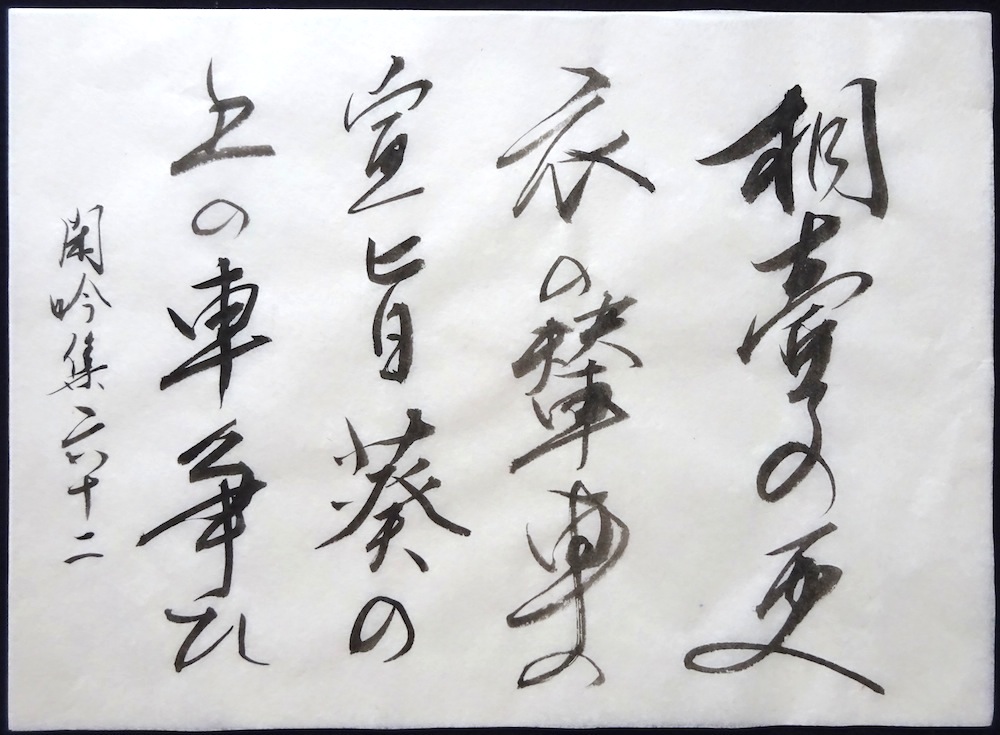 桐壺の更
衣の輦車の
宣旨葵の
上の車争ひ
閑吟集六十二